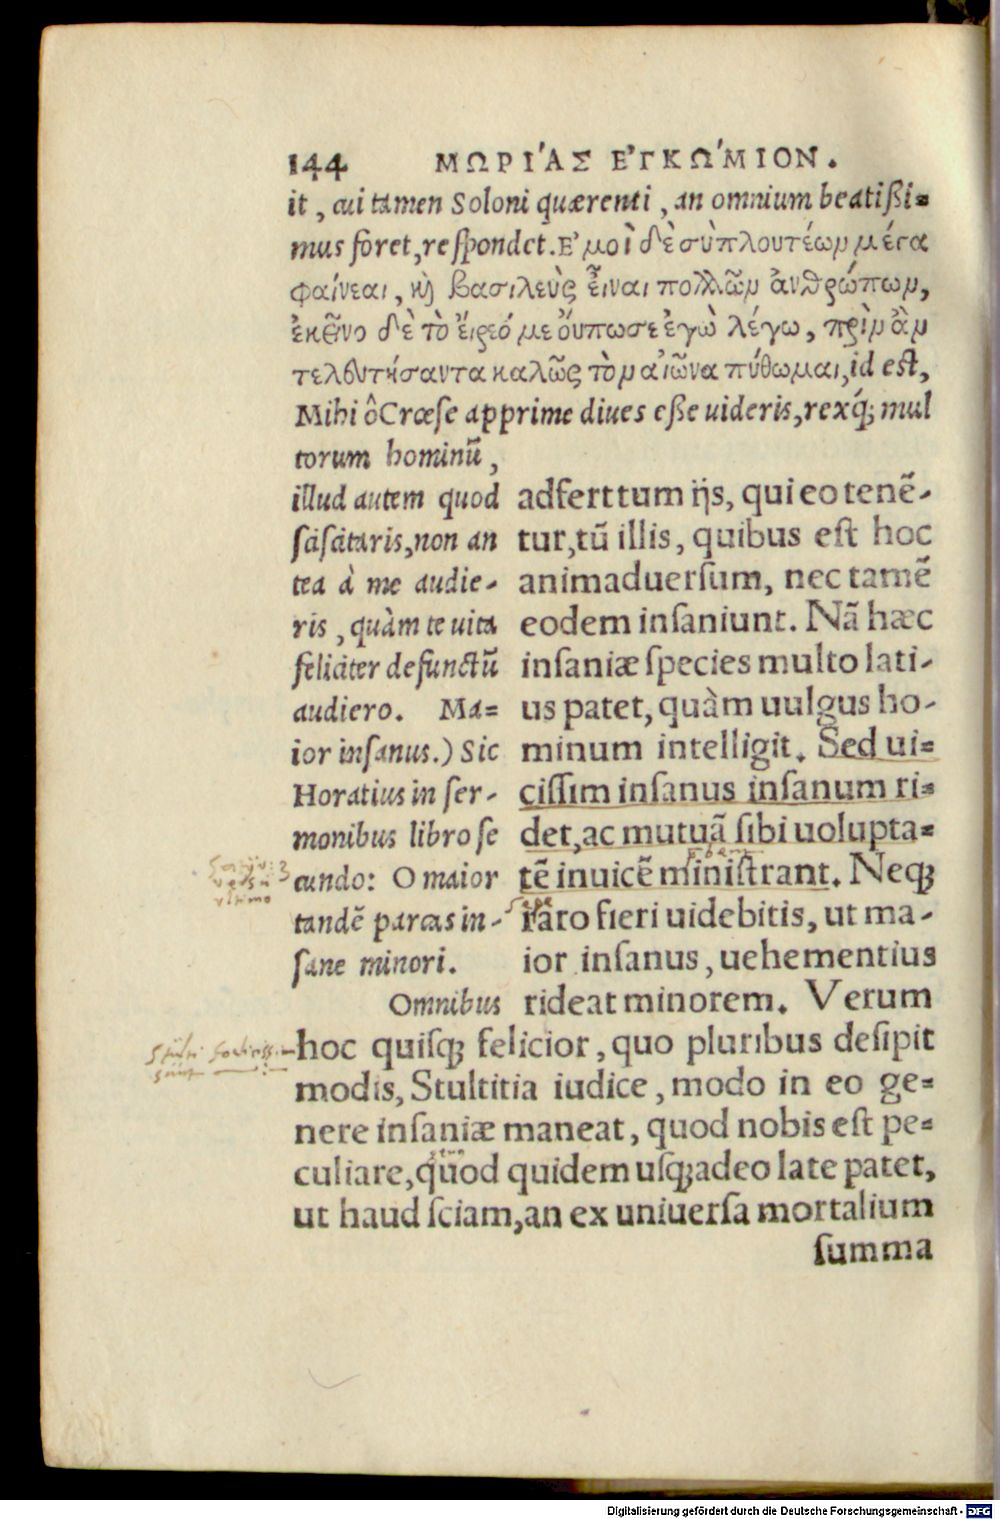 144 ΜΩΡΙ'ΑΣ ΕʼΓΚΩ'ΜΙΟΝ.
it, cui tamen Soloni quærenti, an omnium beatißi=
mus foret, reſpondet. Εʼμοὶ δὲ σὺ πλουτέων μέγα
φαίνεαι, κὴ βασιλεὺς εἶναι πολλῶν ἀνθρώπων,
ἐκεῖνο δὲ τὸ εἴρεό με οὔπω σε ἐγὼ λέγω, πρὶν ἂν
τελευτήσαντα καλῶς τὸν αἰῶνα πύθωμαι, id eſt,
Mihi ô Crœſe apprime diues eße uideris, rexq́; mul
torum hominũ,
illud autem quod
ſciſcitaris, non an
tea à me audie-
ris, quàm te uita
feliciter defunctũ
audiero. Ma=
ior inſanus.) Sic
Horatius in ſer-
monibus libro ſe
cundo: O maior
tandẽ parcas in-
ſane minori.
Omnibus
adfert tum ijs, qui eo tenẽ-
tur, tũ illis, quibus eſt hoc
animaduerſum, nec tamẽ
eodem inſaniunt. Nã hæc
inſaniæ ſpecies multo lati-
us patet, quàm uulgus ho-
minum intelligit. Sed ui=
ciſſim inſanus inſanum ri=
det, ac mutuã ſibi uolupta=
tẽ inuicẽ miniſtrant. Neq;
raro fieri uidebitis, ut ma-
ior inſanus, uehementius
rideat minorem. Verum
hoc quiſq; felicior, quo pluribus deſipit
modis, Stultitia iudice, modo in eo ge=
nere inſaniæ maneat, quod nobis eſt pe=
culiare, quod quidem uſq; adeo late patet,
ut haud ſciam, an ex uniuerſa mortalium
ſumma
ultimo
Digitalisierung gefördert durch die Deutsche Forschungsgemeinschaft - DFG